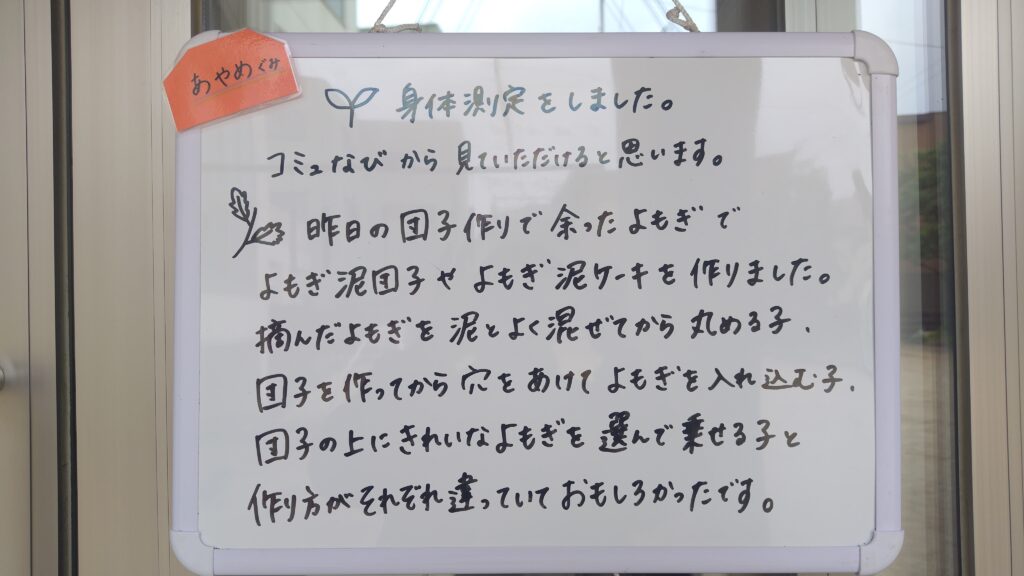 あやめぐみ
身体測定をしました。
コミュなびから見ていただけると思います。
昨日の団子作りで余ったよもぎで
よもぎ泥団子やよもぎ泥ケーキを作りました。
摘んだよもぎを泥とよく混ぜてから丸める子、
団子を作ってから穴をあけてよもぎを入れ込む子、
団子の上にきれいなよもぎを選んで乗せる子と
作り方がそれぞれ違っていておもしろかったです。